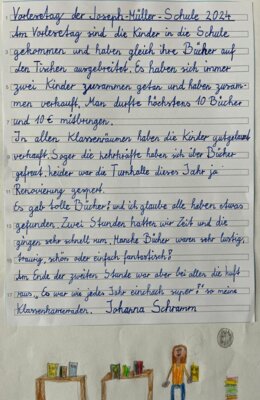 Vorlesetag der Joseph-Müller-Schule 2024
Am Vorlesetag sind die Kinder in die Schule
gekommen und haben gleich ihre Bücher auf
den Tischen ausgebreitet. Es haben sich immer
zwei Kinder zusammen getan und haben zusam-
men verkauft. Man durfte höchstens 10 Bücher
und 10 € mitbringen.
In allen Klassenräumen haben die Kinder gutgelaunt
verkauft. Sogar die Lehrkräfte haben sich über Bücher
gefreut, leider war die Turnhalle dieses Jahr ja
Renovierung gesperrt.
Es gab tolle Bücher! und ich glaube alle haben etwas
gefunden. Zwei Stunden hatten wir Zeit und die
gingen sehr schnell rum. Manche Bücher waren sehr lustig,
traurig, schön oder einfach fantastisch!
Am Ende der zweiten Stunde war aber bei allen die Luft
raus. „Es war wie jedes Jahr einfach super!" so meine
Klassenkameraden. Johanna Schramm